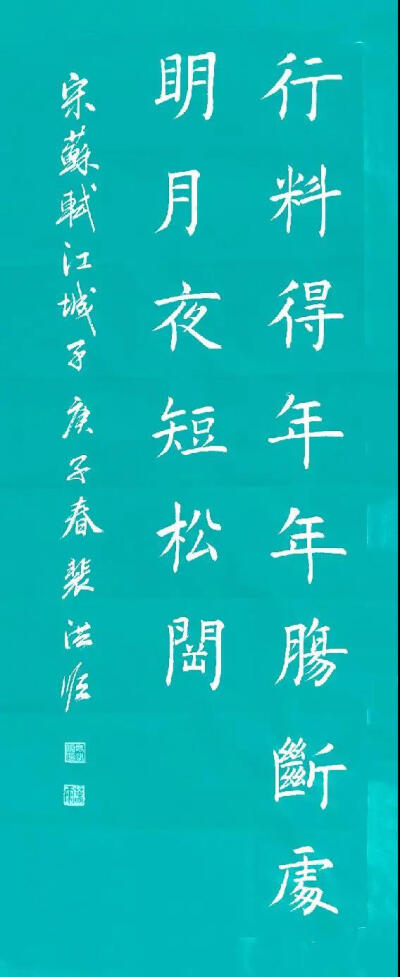 行料得年年腸斷處
明月夜短松岡
宋蘇軾江城子庚子春裴洪順